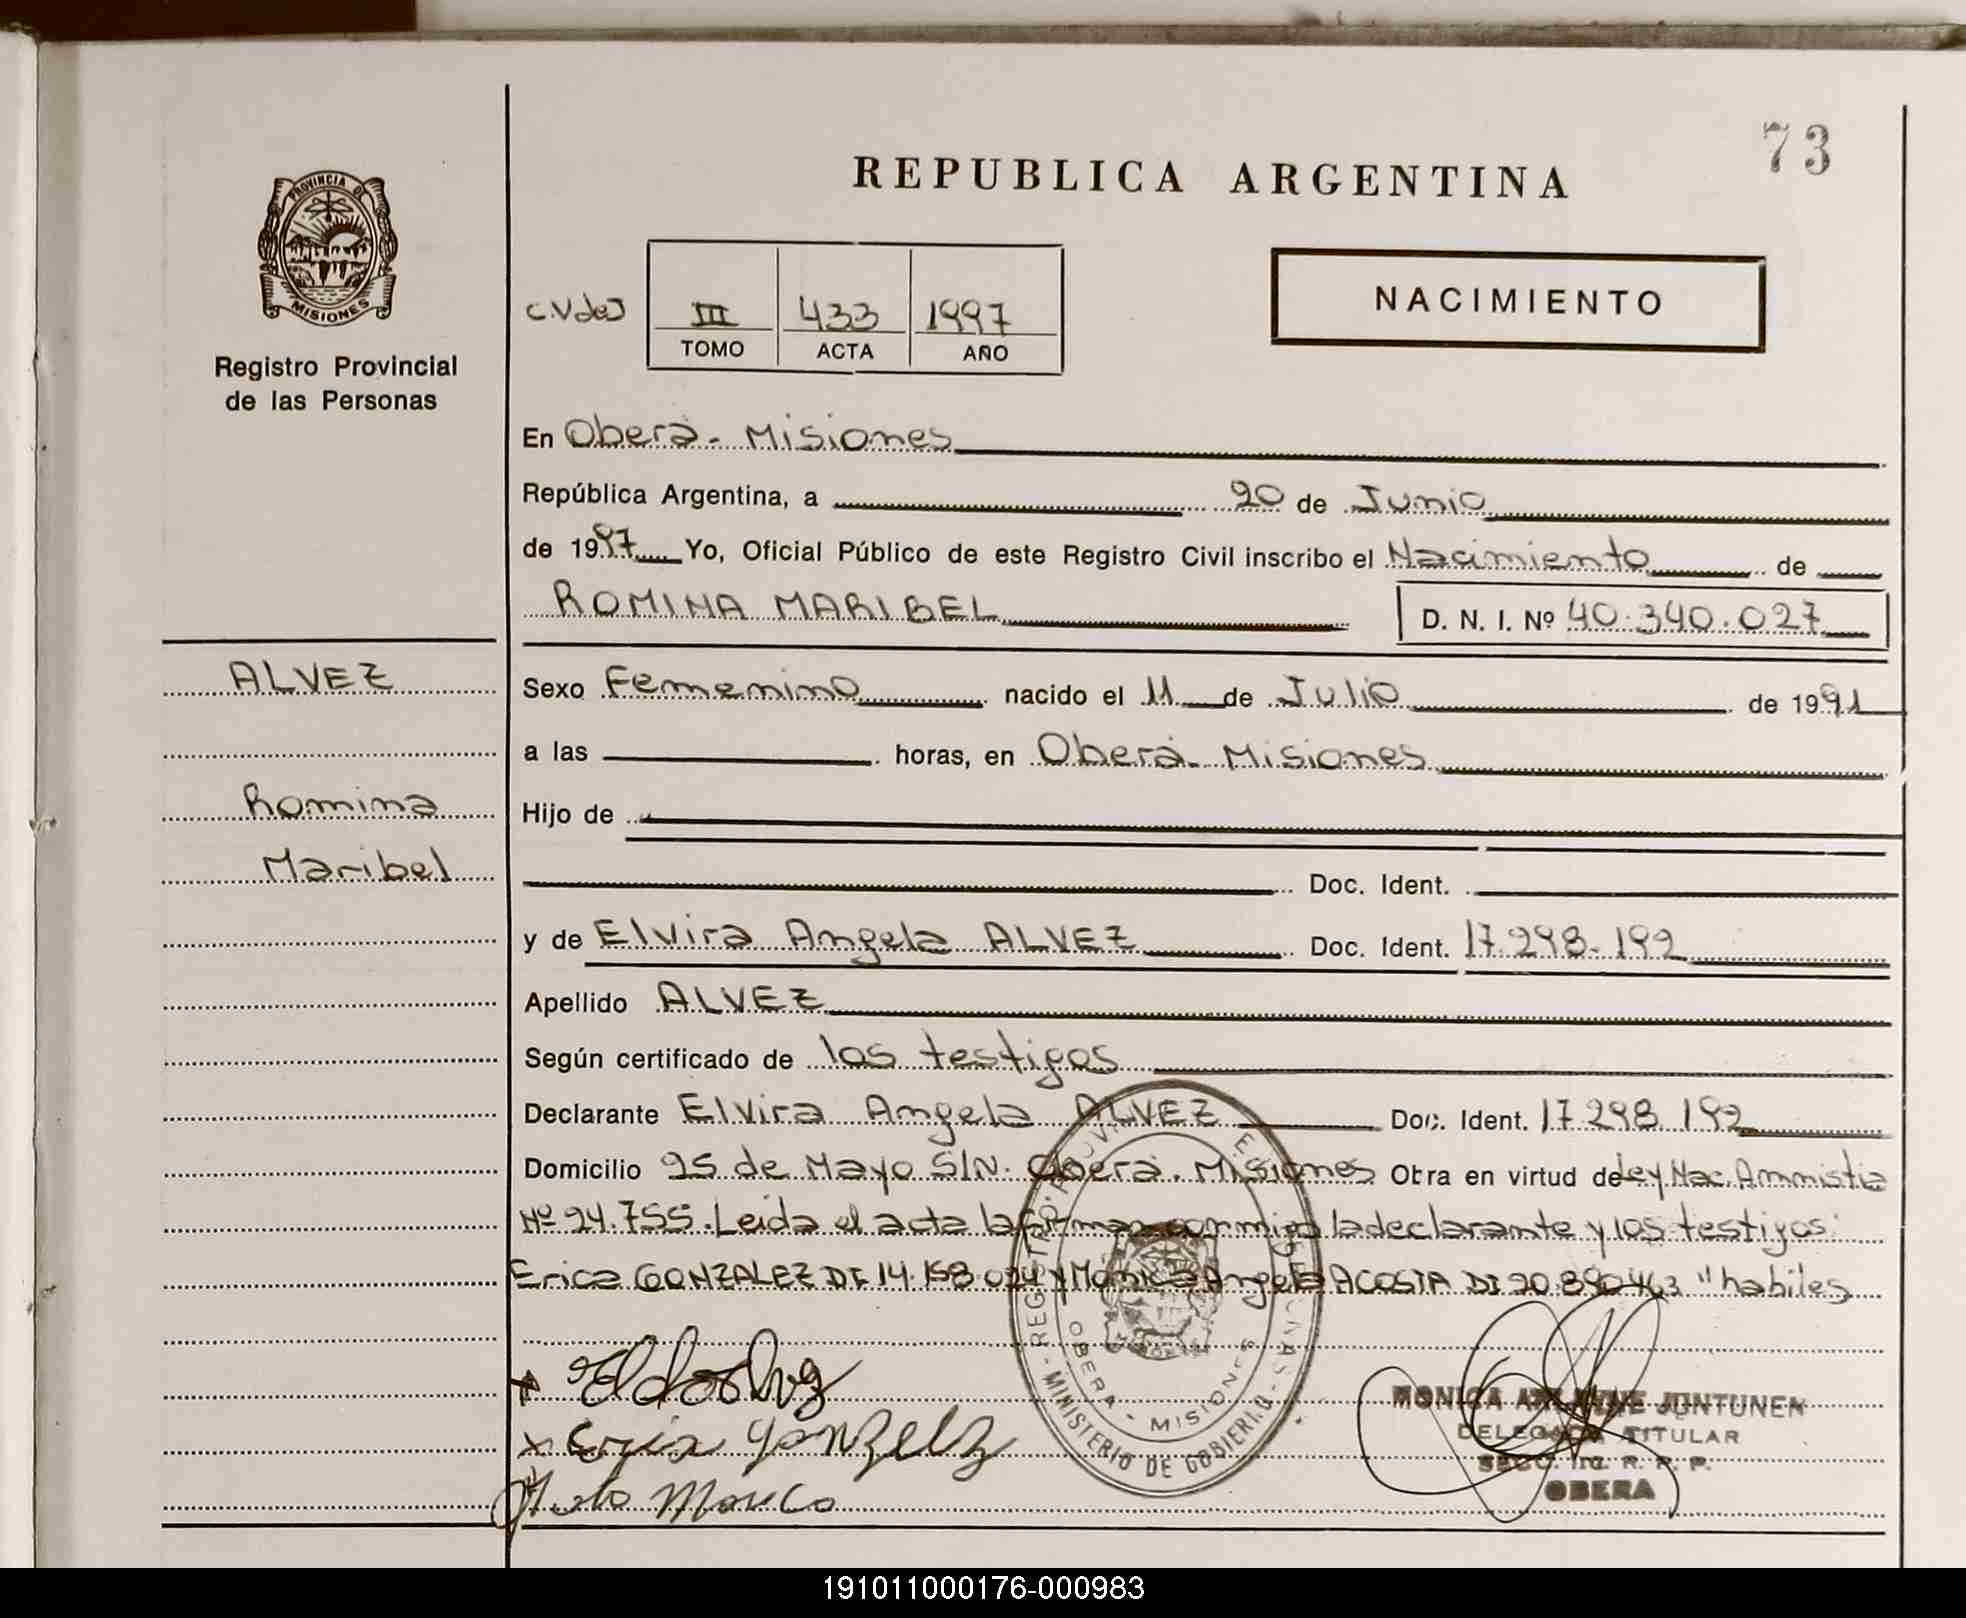 73
REPUBLICA ARGENTINA
PROVINCIA DE
MISIONES
Registro Provincial
de las Personas
C.V de J
III 433 1997
TOMO ACTA AÑO
NACIMIENTO
En Oberá - Misiones
República Argentina, a 20 de Junio
de 1997 Yo, Oficial Público de este Registro Civil inscribo el Nacimiento de
ROMINA MARIBEL D. N. I. Nº 40.340.027
ALVEZ
Romina
Maribel
Sexo Femenino nacido el 11 de Julio de 1991
a las horas, en Oberá - Misiones
Hijo de
Doc. Ident.
y de Elvira Angela ALVEZ Doc. Ident. 17.298.192
Apellido ALVEZ
Según certificado de los testigos
Declarante Elvira Angela ALVEZ Doc. Ident. 17.298.192
Domicilio 25 de Mayo S/N. Oberá. Misiones Obra en virtud de Ley Nac. Amnistia
Nº 24.755. Leida el acta la firman conmigo la declarante y los testigos:
Erica GONZALEZ DI 14.158.024 y Mónica Angela ACOSTA DI 20.890.463 "habiles
x
x Erica Gonzalz
REGISTRO PROVINCIAL DE LAS PERSONAS - MINISTERIO DE GOBIERNO -
OBERA - MISIONES
MONICA JUNTUNEN
DELEGADA TITULAR
R. P. P.
OBERA
191011000176-000983